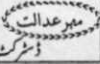 مہر عدالت
ڈسٹرکٹ